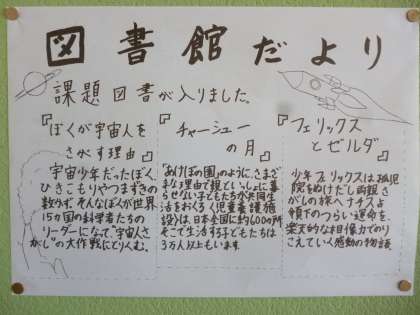 図書館だより
課題図書が入りました。
『ぼくが宇宙人を
さがす理由』
宇宙少年だったぼく。
ひきこもりやつまずきの
数々。そんなぼくが世界
15カ国の科学者たちの
リーダーになって、"宇宙人さ
がし"の大作戦にとりくむ。
『チャーシュー
の月』
「あけぼの園」のように、さまざ
まな理由で親といっしょに暮
らせない子どもたちが共同生
活をおくる（児童養護施
設）は、日本全国に約600ヶ所
そこで生活する子どもたちは
3万人以上もいます
『フェリックス
とゼルダ』
少年フェリックスは孤児
院をぬけだし両親さ
がしの旅へ ナチス占
領下のつらい運命を、
楽天的な想像力でのり
こえていく感動の物語